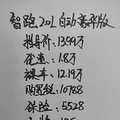 智跑2.0L自动豪华版
指导价:13.99万
优惠:1.8万
裸车:12.19万
购置税:10788
保险:5528